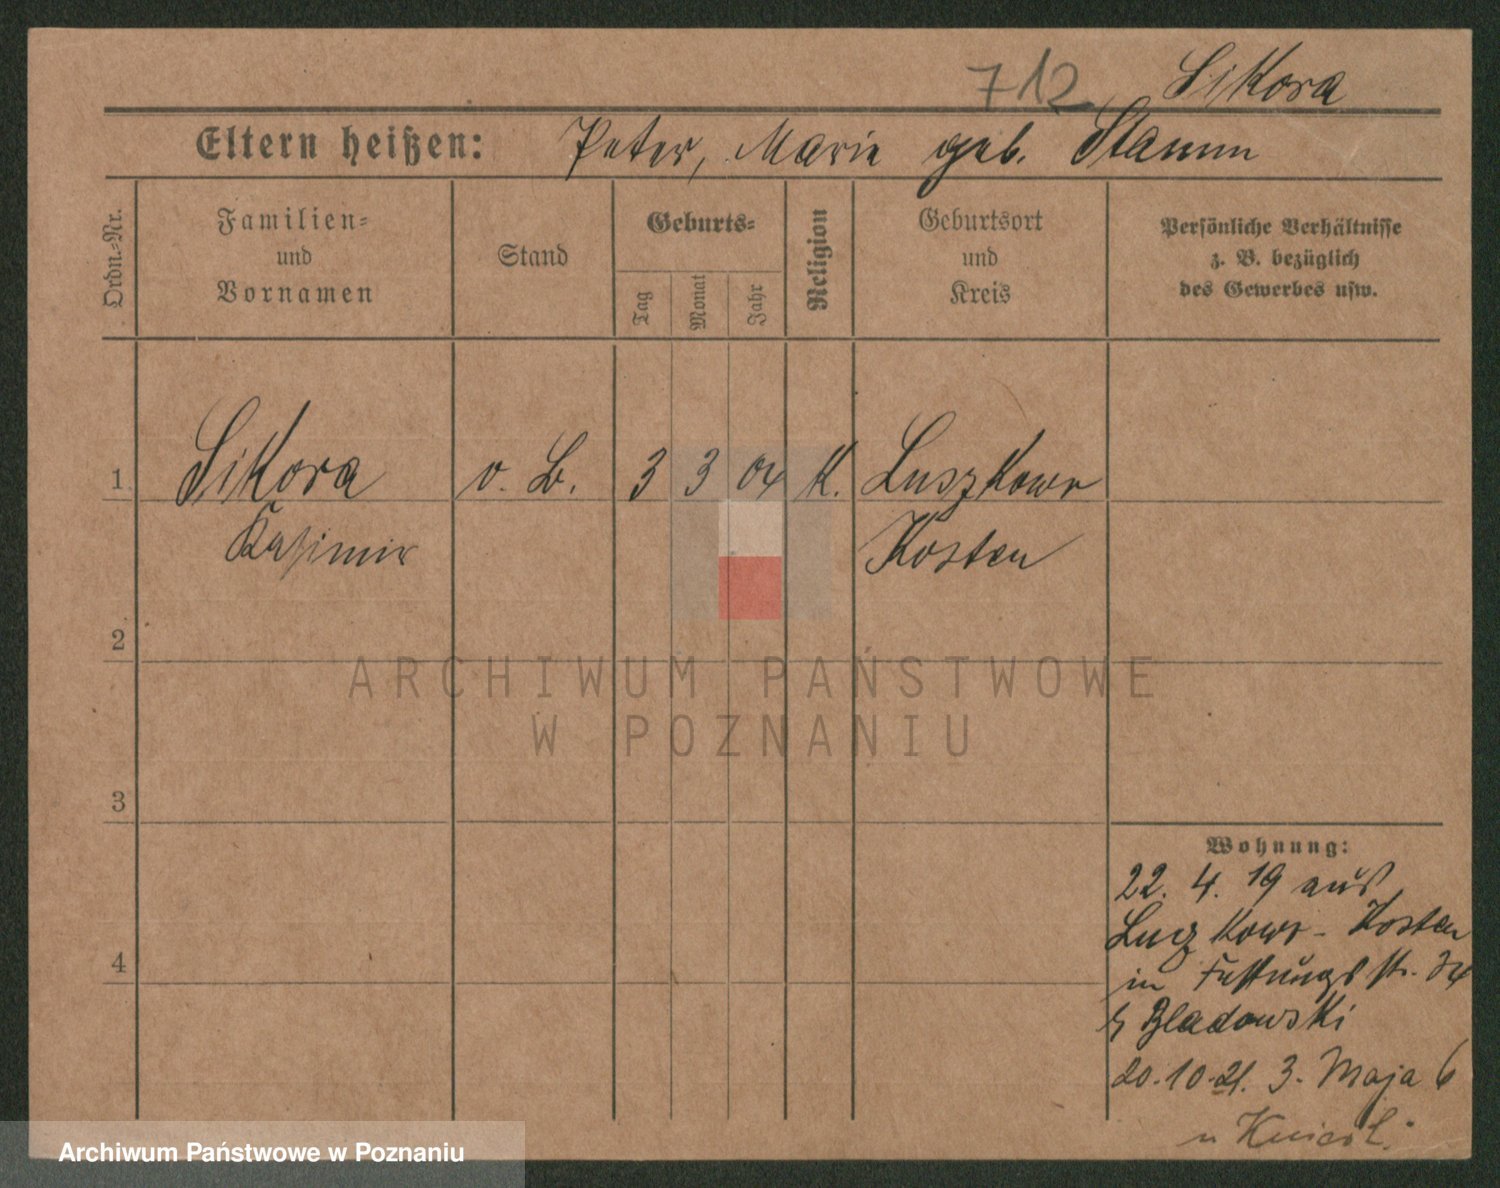 712 Sikora
Eltern heißen: Peter, Marie geb. Stamm
Ordn.-Nr.
Familien-
und
Vornamen
Stand
Geburts-
Tag
Monat
Jahr
Religion
Geburtsort
und
Kreis
Persönliche Verhältnisse
z. B. bezüglich
des Gewerbes usw.
1 Sikora o. B. 3 3 04 K. Luszkowo
Kasimir Kosten
2
3
4
Wohnung:
22. 4. 19 aus
Luszkowo - Kosten
in Festungsstr. 34
b Bladowski
20.10.21. 3. Maja 6
u
ARCHIWUM PAŃSTWOWE
W POZNANIU
Archiwum Państwowe w Poznaniu